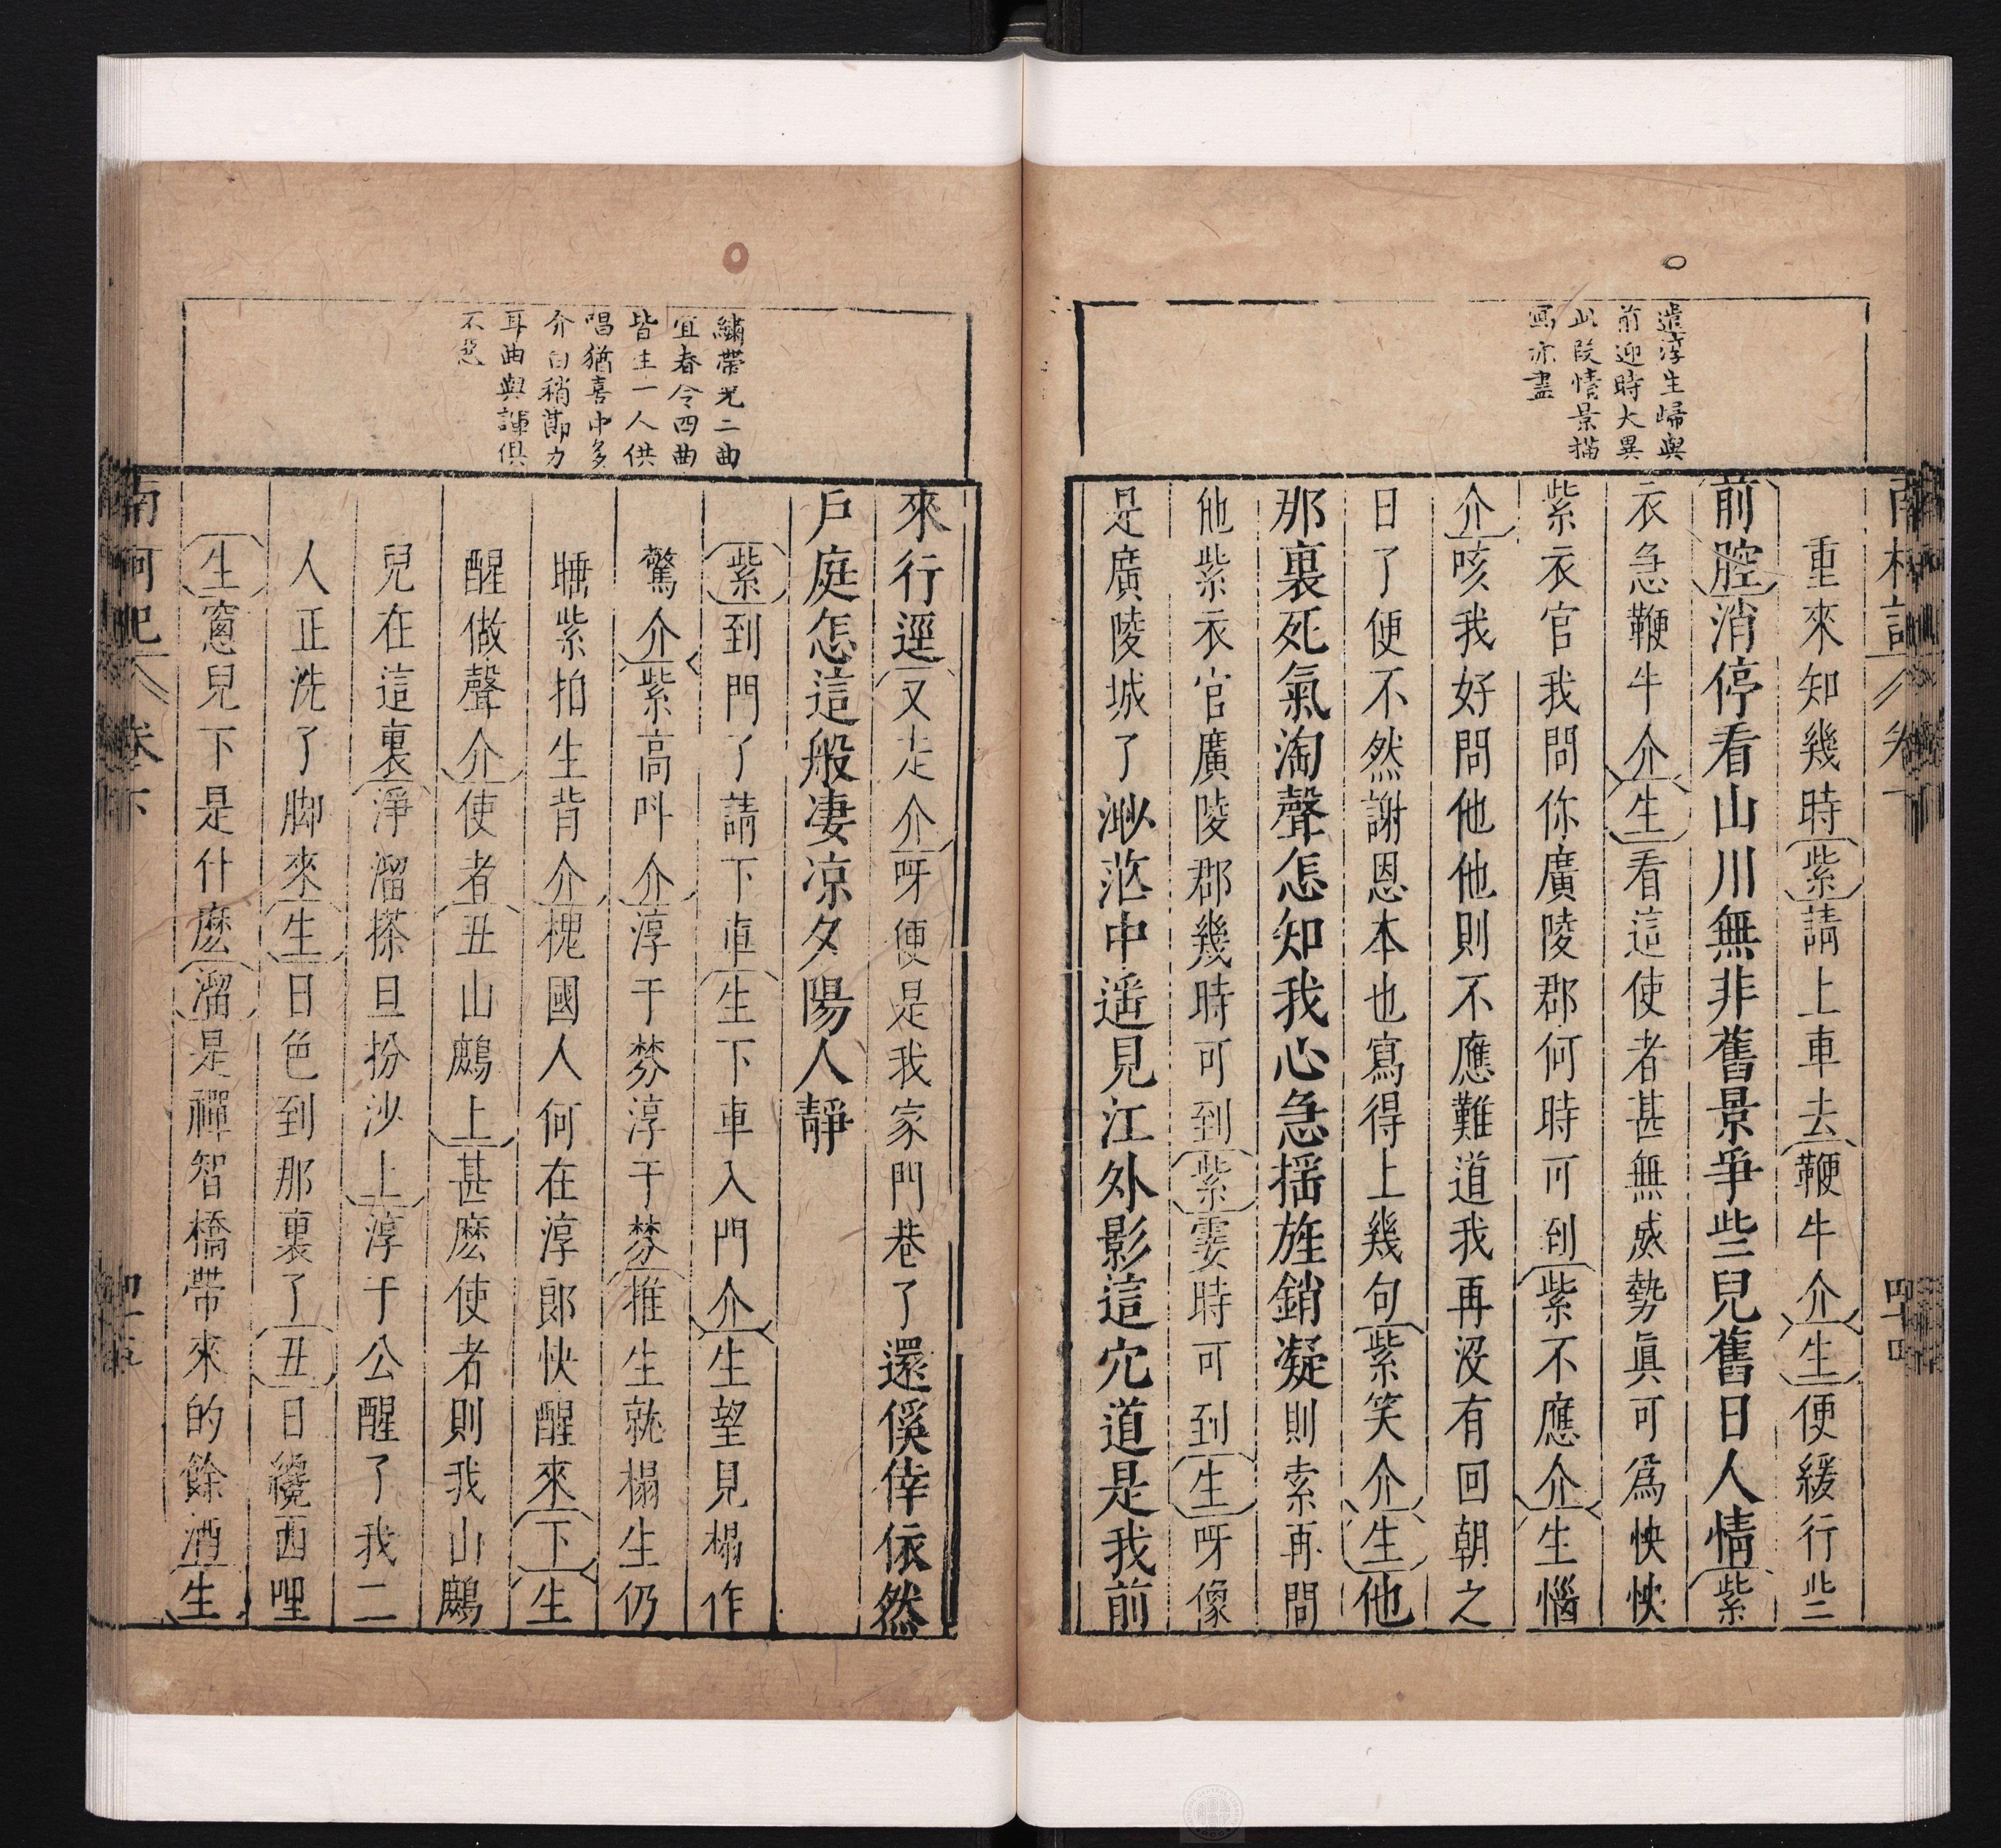 遣淳生歸與
前迎時大異
此段情景描
寫亦盡
南柯記
卷下
四十四
重來知幾時紫請上車去鞭牛介生便緩行些
前腔消停看山川無非舊景爭些兒舊日人情紫
衣急鞭牛介生看這使者甚無威勢眞可爲怏怏
紫衣官我問你廣陵郡何時可到紫不應介生惱
介咳我好問他他則不應難道我再沒有回朝之
日了便不然謝恩本也寫得上幾句紫笑介生他
那裏死氣淘聲怎知我心急搖旌銷凝則索再問
他紫衣官廣陵郡幾時可到紫霎時可到生呀像
是廣陵城了渺茫中遥見江外影這穴道是我前
繡帶兒二曲
宜春令四曲
皆生一人供
唱猶喜中多
介白稍節力
耳曲與諢俱
不惡
來行逕又走介呀便是我家門巷了還傒倖依然
戶庭怎這般凄凉夕陽人靜
紫到門了請下車生下車入門介生望見榻作
驚介紫高叫介淳于棼淳于棼推生就榻生仍
睡紫拍生背介槐國人何在淳郎快醒來下生
醒做聲介使者丑山鷓上甚麽使者則我山鷓
兒在這裏淨溜搽旦扮沙上淳于公醒了我二
人正洗了脚來生日色到那裏了丑日纔西哩
生窻兒下是什麽溜是禪智橋帶來的餘酒生
南柯記
卷下
四十五